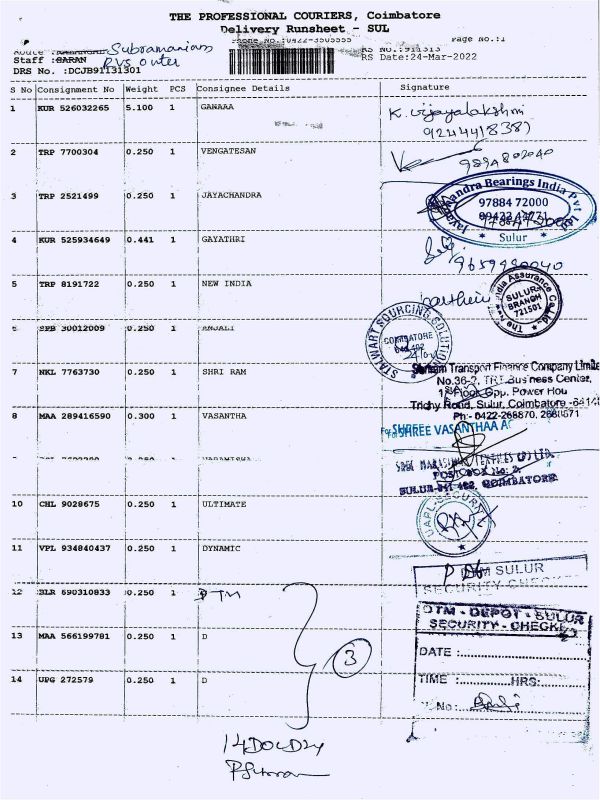 THE PROFESSIONAL COURIERS, Coimbatore
Delivery Runsheet - SUL
Page No.:1
Subramaniam
Staff : SARAN RVS outer
RS Date:24-Mar-2022
DRS No. :DCJB91131301
S No Consignment No Weight PCS Consignee Details Signature
1 KUR 526032265 5.100 1 GANAAA K. Vijayalakshmi
9244418387
2 TRP 7700304 0.250 1 VENGATESAN 9894802040
3 TRP 2521499 0.250 1 JAYACHANDRA Bearings India Pvt Ltd
97884 72000
* Sulur *
4 KUR 525934649 0.441 1 GAYATHRI
9659980040
5 TRP 8191722 0.250 1 NEW INDIA
The New India Assurance Co. Ltd.
SULUR
BRANCH
721501
6 SPB 30012009 0.250 1 ANJALI
STALWART SOURCING SOLUTIONS
COIMBATORE
641 402
7 NKL 7763730 0.250 1 SHRI RAM Shriram Transport Finance Company Limite
No.36-2, TRT Business Center,
1st Floor, Opp. Power Hou
Trichy Road, Sulur, Coimbatore -6414
Ph:- 0422-268870, 2681571
8 MAA 289416590 0.300 1 VASANTHA For SHREE VASANTHAA A
0.250 1
POST BOX No: 2,
SULUR-641 402, COIMBATORE
10 CHL 9028675 0.250 1 ULTIMATE UAPL-SECURITY
11 VPL 934840437 0.250 1 DYNAMIC
DTM SULUR
SECURITY CHECK
12 BLR 690310833 0.250 1 DTM
DTM - DEPOT - SULUR
SECURITY - CHECKED
13 MAA 566199781 0.250 1 D
3
DATE :
14 UPG 272579 0.250 1 D
TIME : HRS:
No: